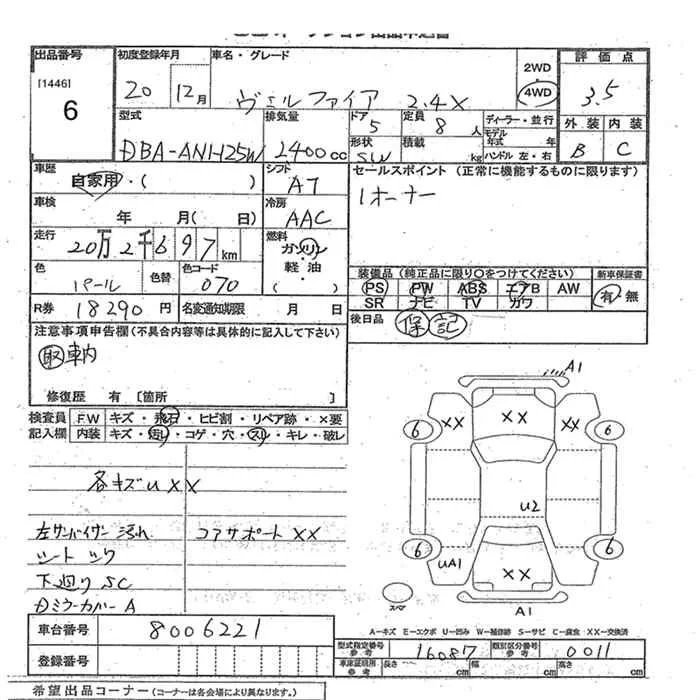 出品番号
[1446]
6
初度登録年月
20 12月
車名・グレード
ヴェルファイア 2.4X
2WD
4WD
評価点
3.5
外装 内装
B C
型式
DBA-ANH25W
排気量
2400cc
ドア
5
形状
SW
定員
8人
積載
kg
ディーラー・並行
モデル年式 年
ハンドル 左・右
車歴
自家用・( )
シフト
AT
セールスポイント (正常に機能するものに限ります)
1オーナー
車検
年 月( 日)
冷房
AAC
走行
20万2千697km
燃料
ガソリン
軽・油
( ・ )
色
パール
色替
色コード
070
装備品(純正品に限り○をつけてください)
PS PW ABS エアB AW
SR ナビ TV カワ
新車保証書
有・無
R券
18290円
名変通知期限 月 日
後日品
保 記
注意事項申告欄(不具合内容等は具体的に記入して下さい)
取 車内
修復歴 有 [箇所 ]
検査員記入欄
FW キズ・飛石・ヒビ割・リペア跡・×要
内装 キズ・汚レ・コゲ・穴・スレ・キレ・破レ
各キズU XX
左サンバイザー 汚れ
コアサポート XX
シート シワ
下廻り SC
Dミラーカバー A
A1
XX
XX
XX
6
6
U2
6
6
UA1
XX
スペア
A1
A-キズ E-エクボ U-凹み W-補修跡 S-サビ C-腐食 XX-交換済
車台番号
8006221
登録番号
型式指定番号
参考
16087
類別区分番号
参考
0011
車庫証明用
参考
長さ cm 幅 cm 高さ cm
希望出品コーナー(コーナーは各会場により異なります。)